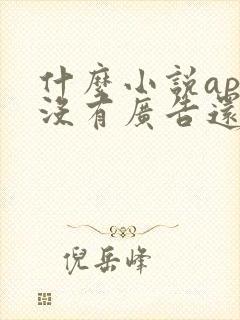 什麼小説ap
沒有廣告還
倪岳峰